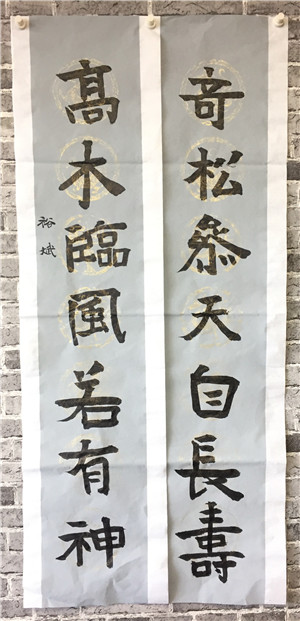 竒松叅天自長壽
髙木臨風若有神
裕斌